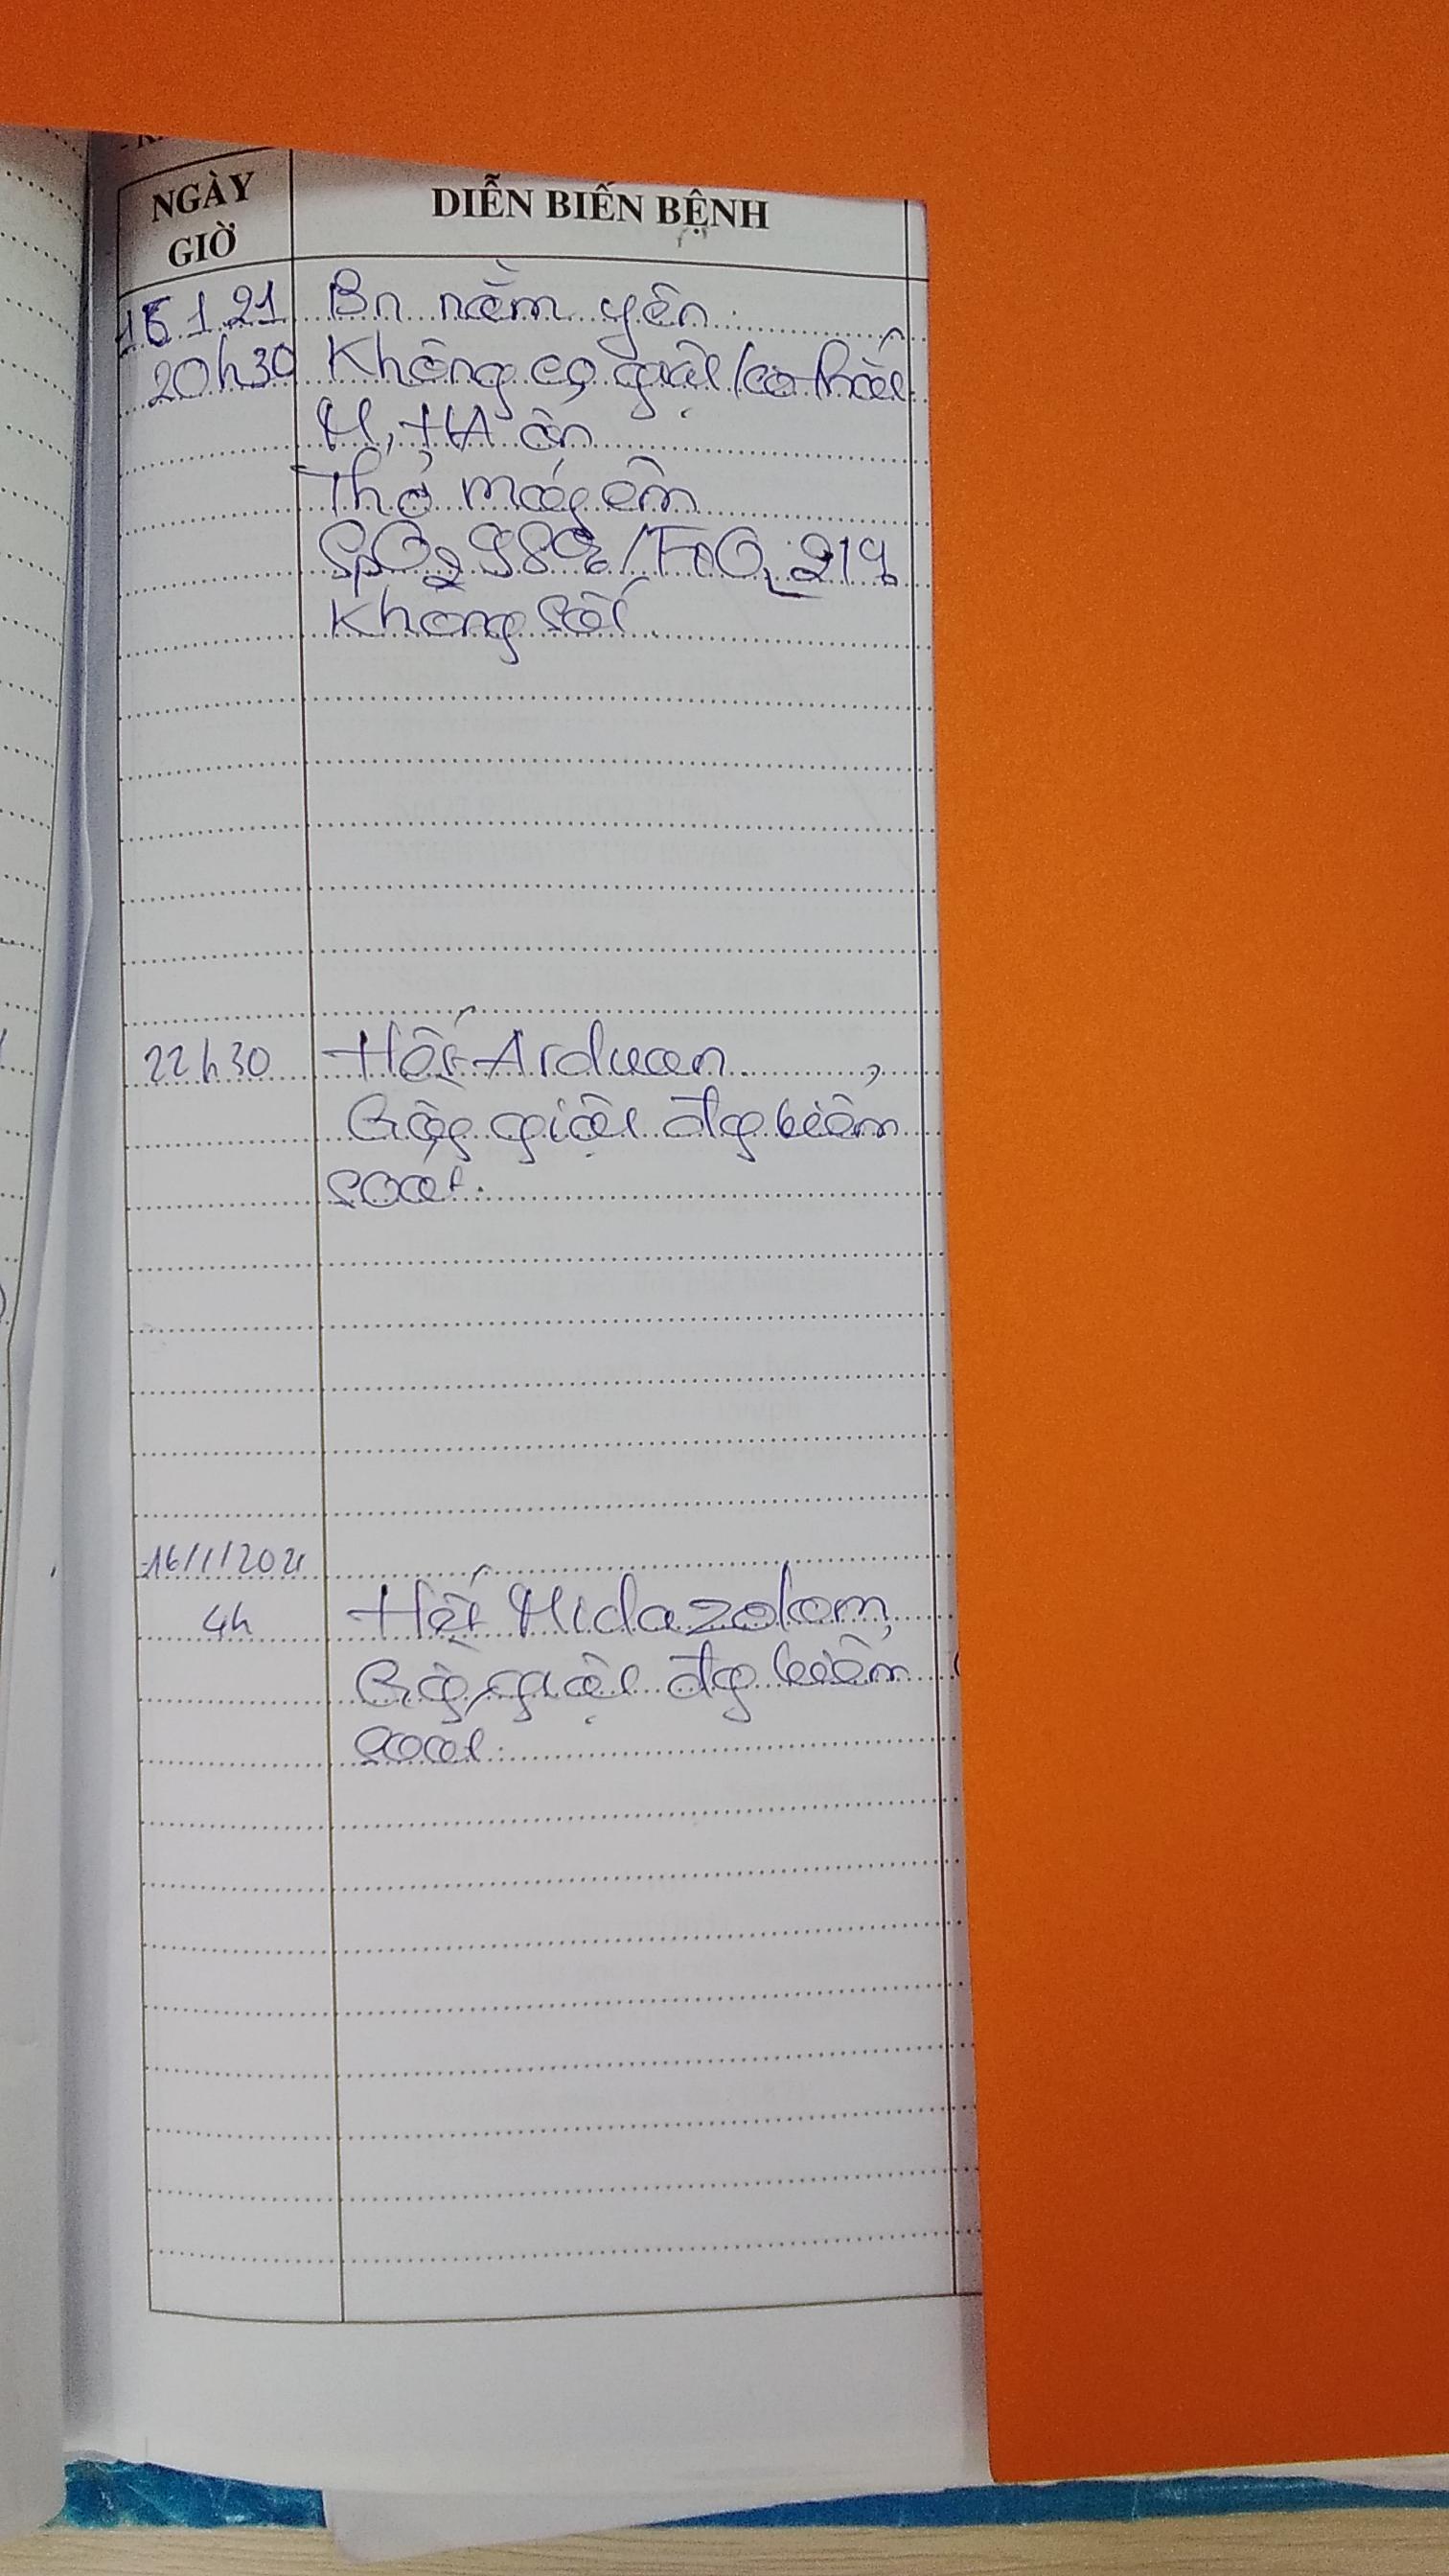 NGÀY GIỜ
DIỄN BIẾN BỆNH
15.1.21
Bn nằm yên
20h30
Không co giật/co thắt
M, HA ổn
Thở máy êm
SpO2 98%/FiO2 21%
Không sốt
22h30
Hết Arduan,
Gây giật đg kiểm
soát.
16/1/2021
4h
Hết Midazolam,
Gây giật đg kiểm
soát.